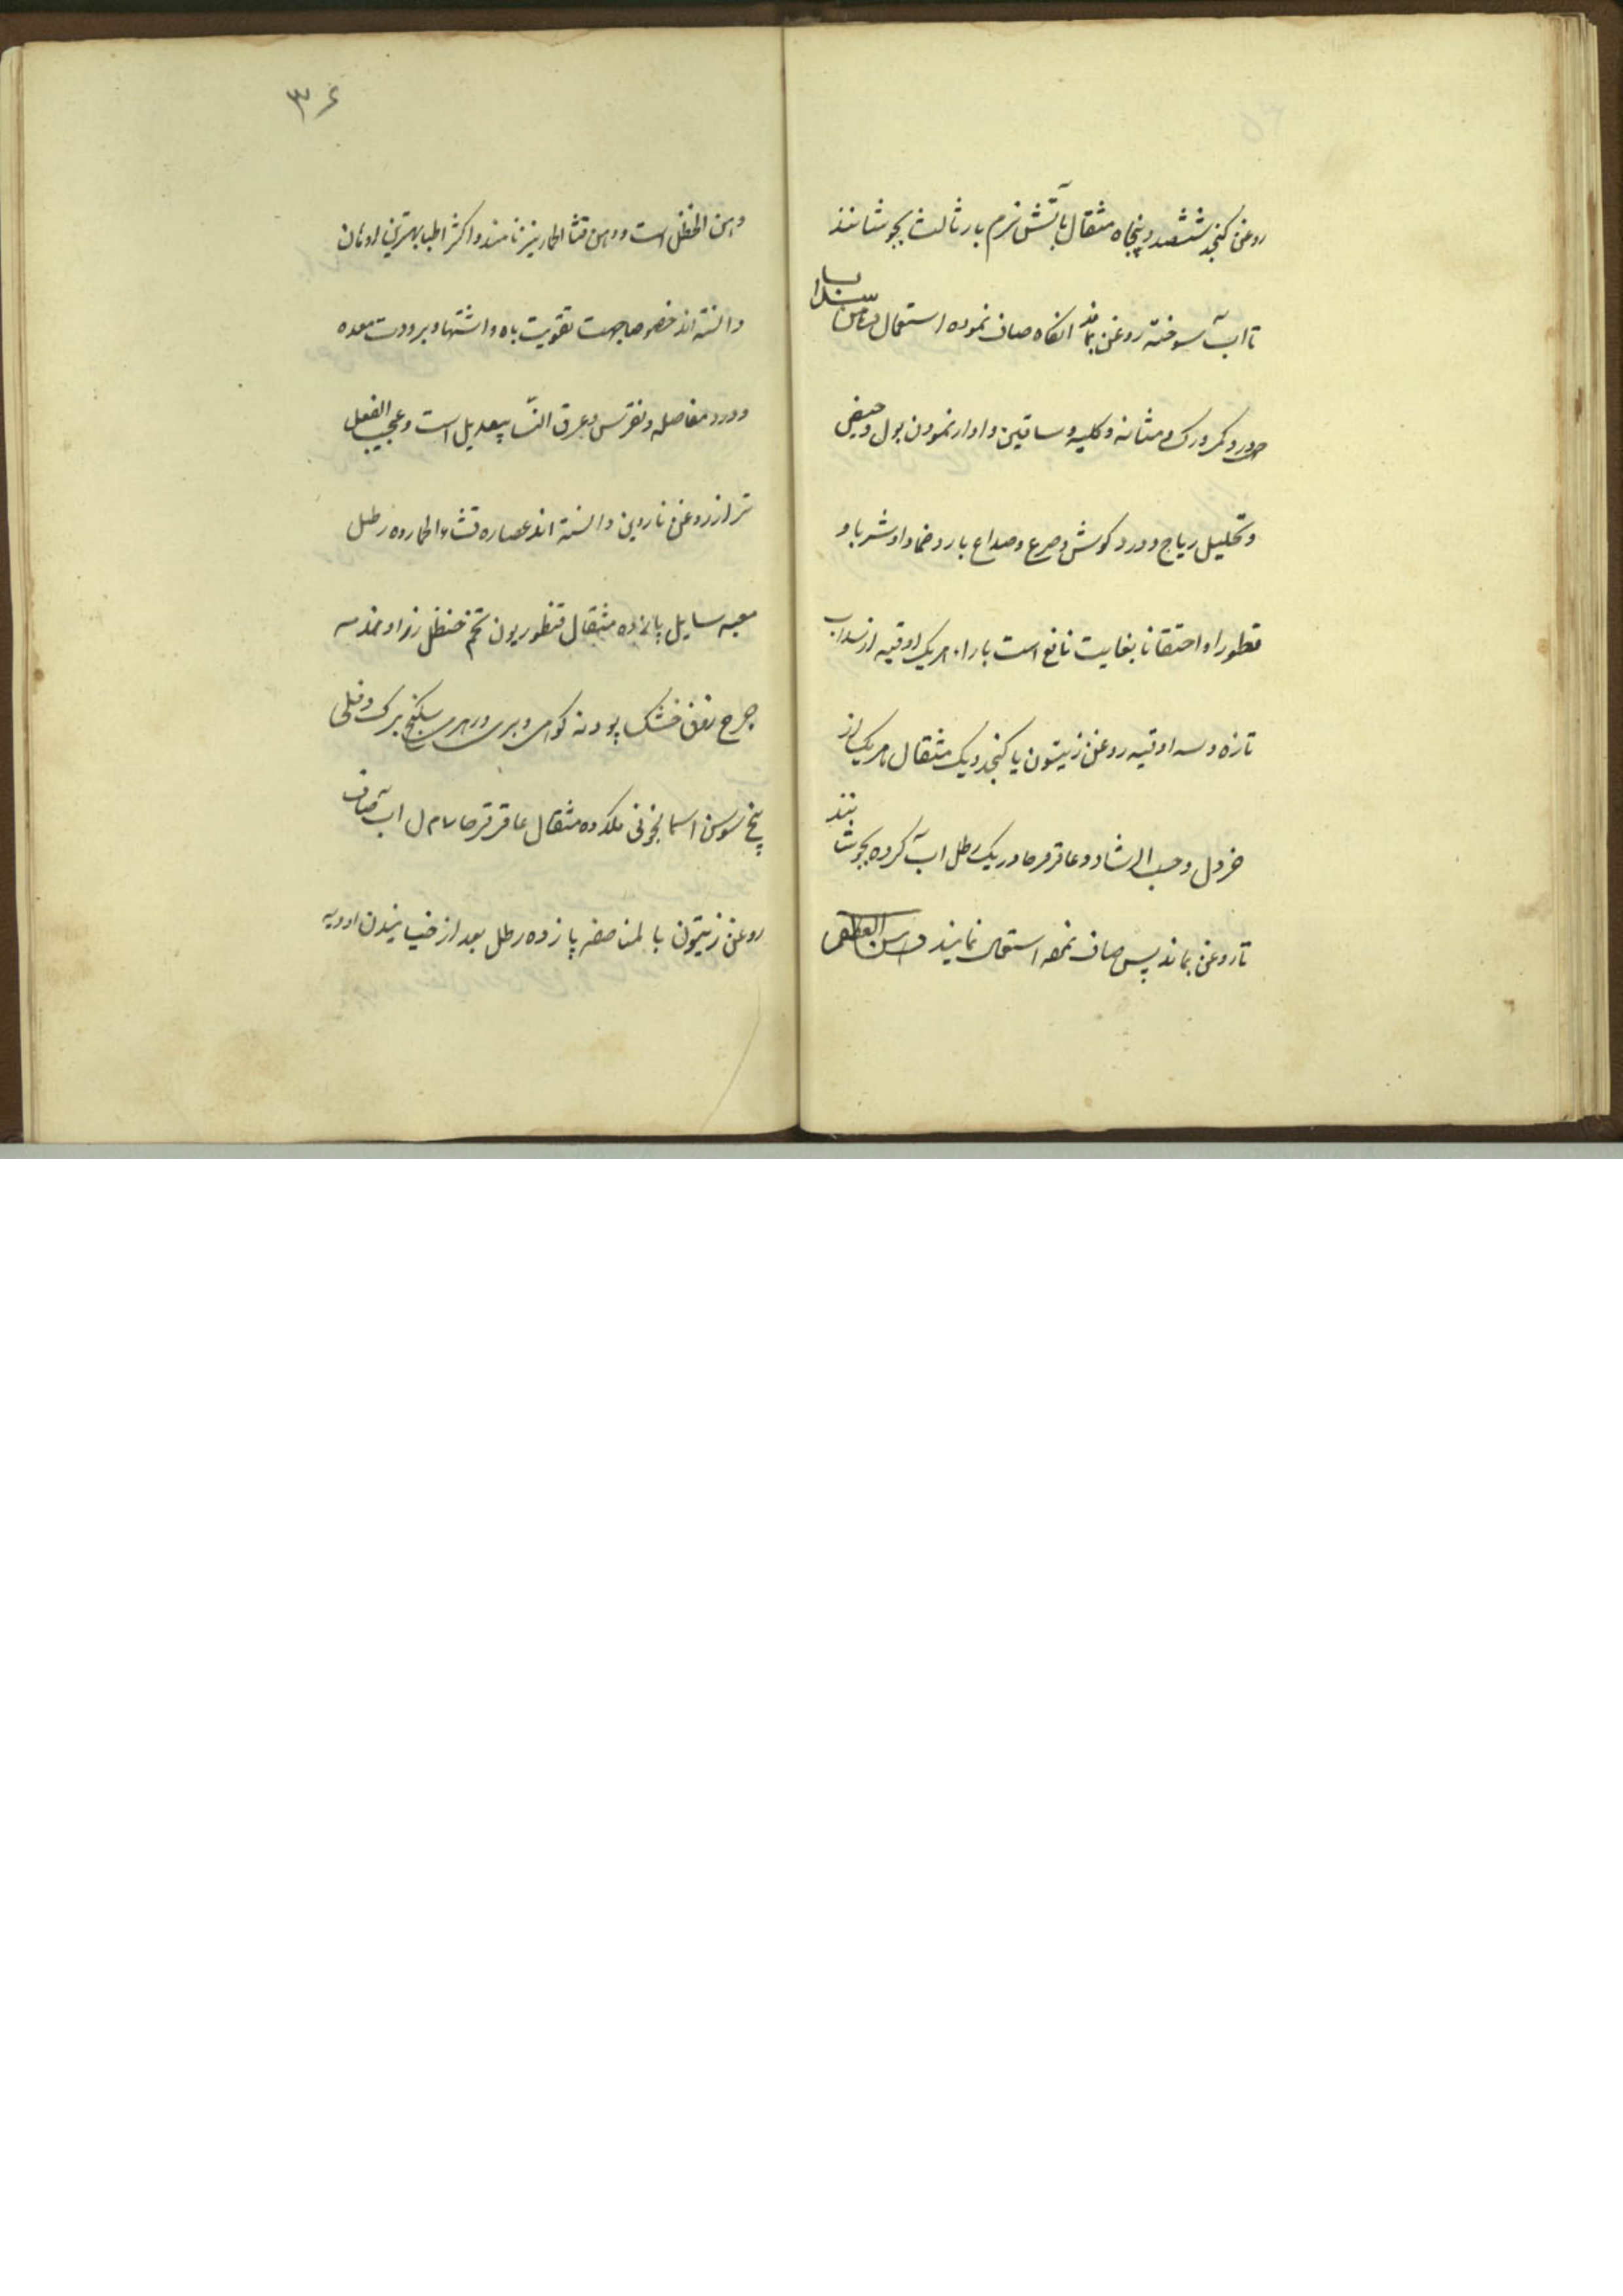 روغن کنجد ششصد و پنجاه مثقال بآتش نرم بار ثالث بجوشانند
تا آب سوخته روغن بماند انکاه صاف نموده استعمال
درد کمر و ورک و مثانه و کلیه و ساقین و ادرار نمودن بول و حیض
و تحلیل ریاح و درد کوش و صرع و صداع بارد ضمادا و شربا و
قطورا و احتقانا بغایت نافع است یک اوقیه از سداب
تازه و سه اوقیه روغن زیتون یا کنجد و یک مثقال هر یک از
خردل و حب الرشاد و عاقرقرحا در یک رطل آب کرده بجوشانند
تا روغن بماند پس صاف نموده استعمال نمایند
۳۶
دهن الحنظل است و دهن قثاء الحمار نیز نامند و اکثر اطبا بهترین ادهان
دانسته اند خصوصا جهت تقویت باه و اشتها و برودت معده
و درد مفاصل و نقرس و عرق النسا بیعدیل است و عجیب الفعل
تر از روغن ناردین دانسته اند عصاره قثاء الحمار ده رطل
میعه سایله پانزده مثقال قنطوریون تخم حنظل
خشک پودنه سکبنج برک دفلی
بیخ سوسن اسمانجونی ده مثقال عاقرقرحا آب صاف
روغن زیتون پانزده رطل بعد از خیسانیدن ادویه